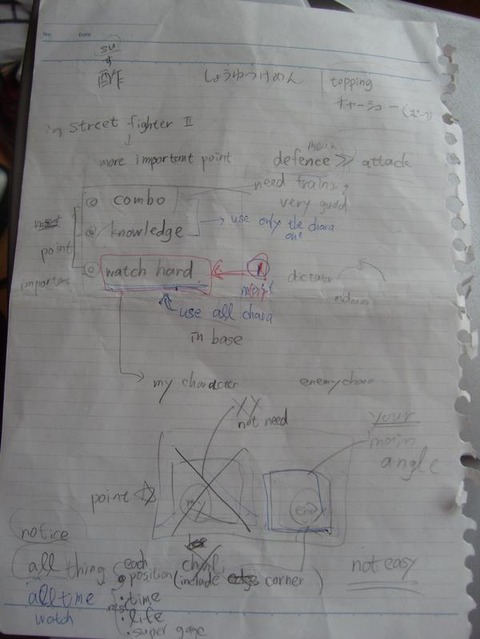 su
酢
しょうゆうけめん
topping
チャーシュー
in Street fighter II
more important point
main
defence ≫ attack
need training
very good
combo
knowledge
use only the chara
one
point
important
watch hard
use all chara
in base
my character
enemy chara
not need
your
main
angle
point
my
notice
all thing
each
position (include corner)
not easy
all time
time
watch
life
super gage